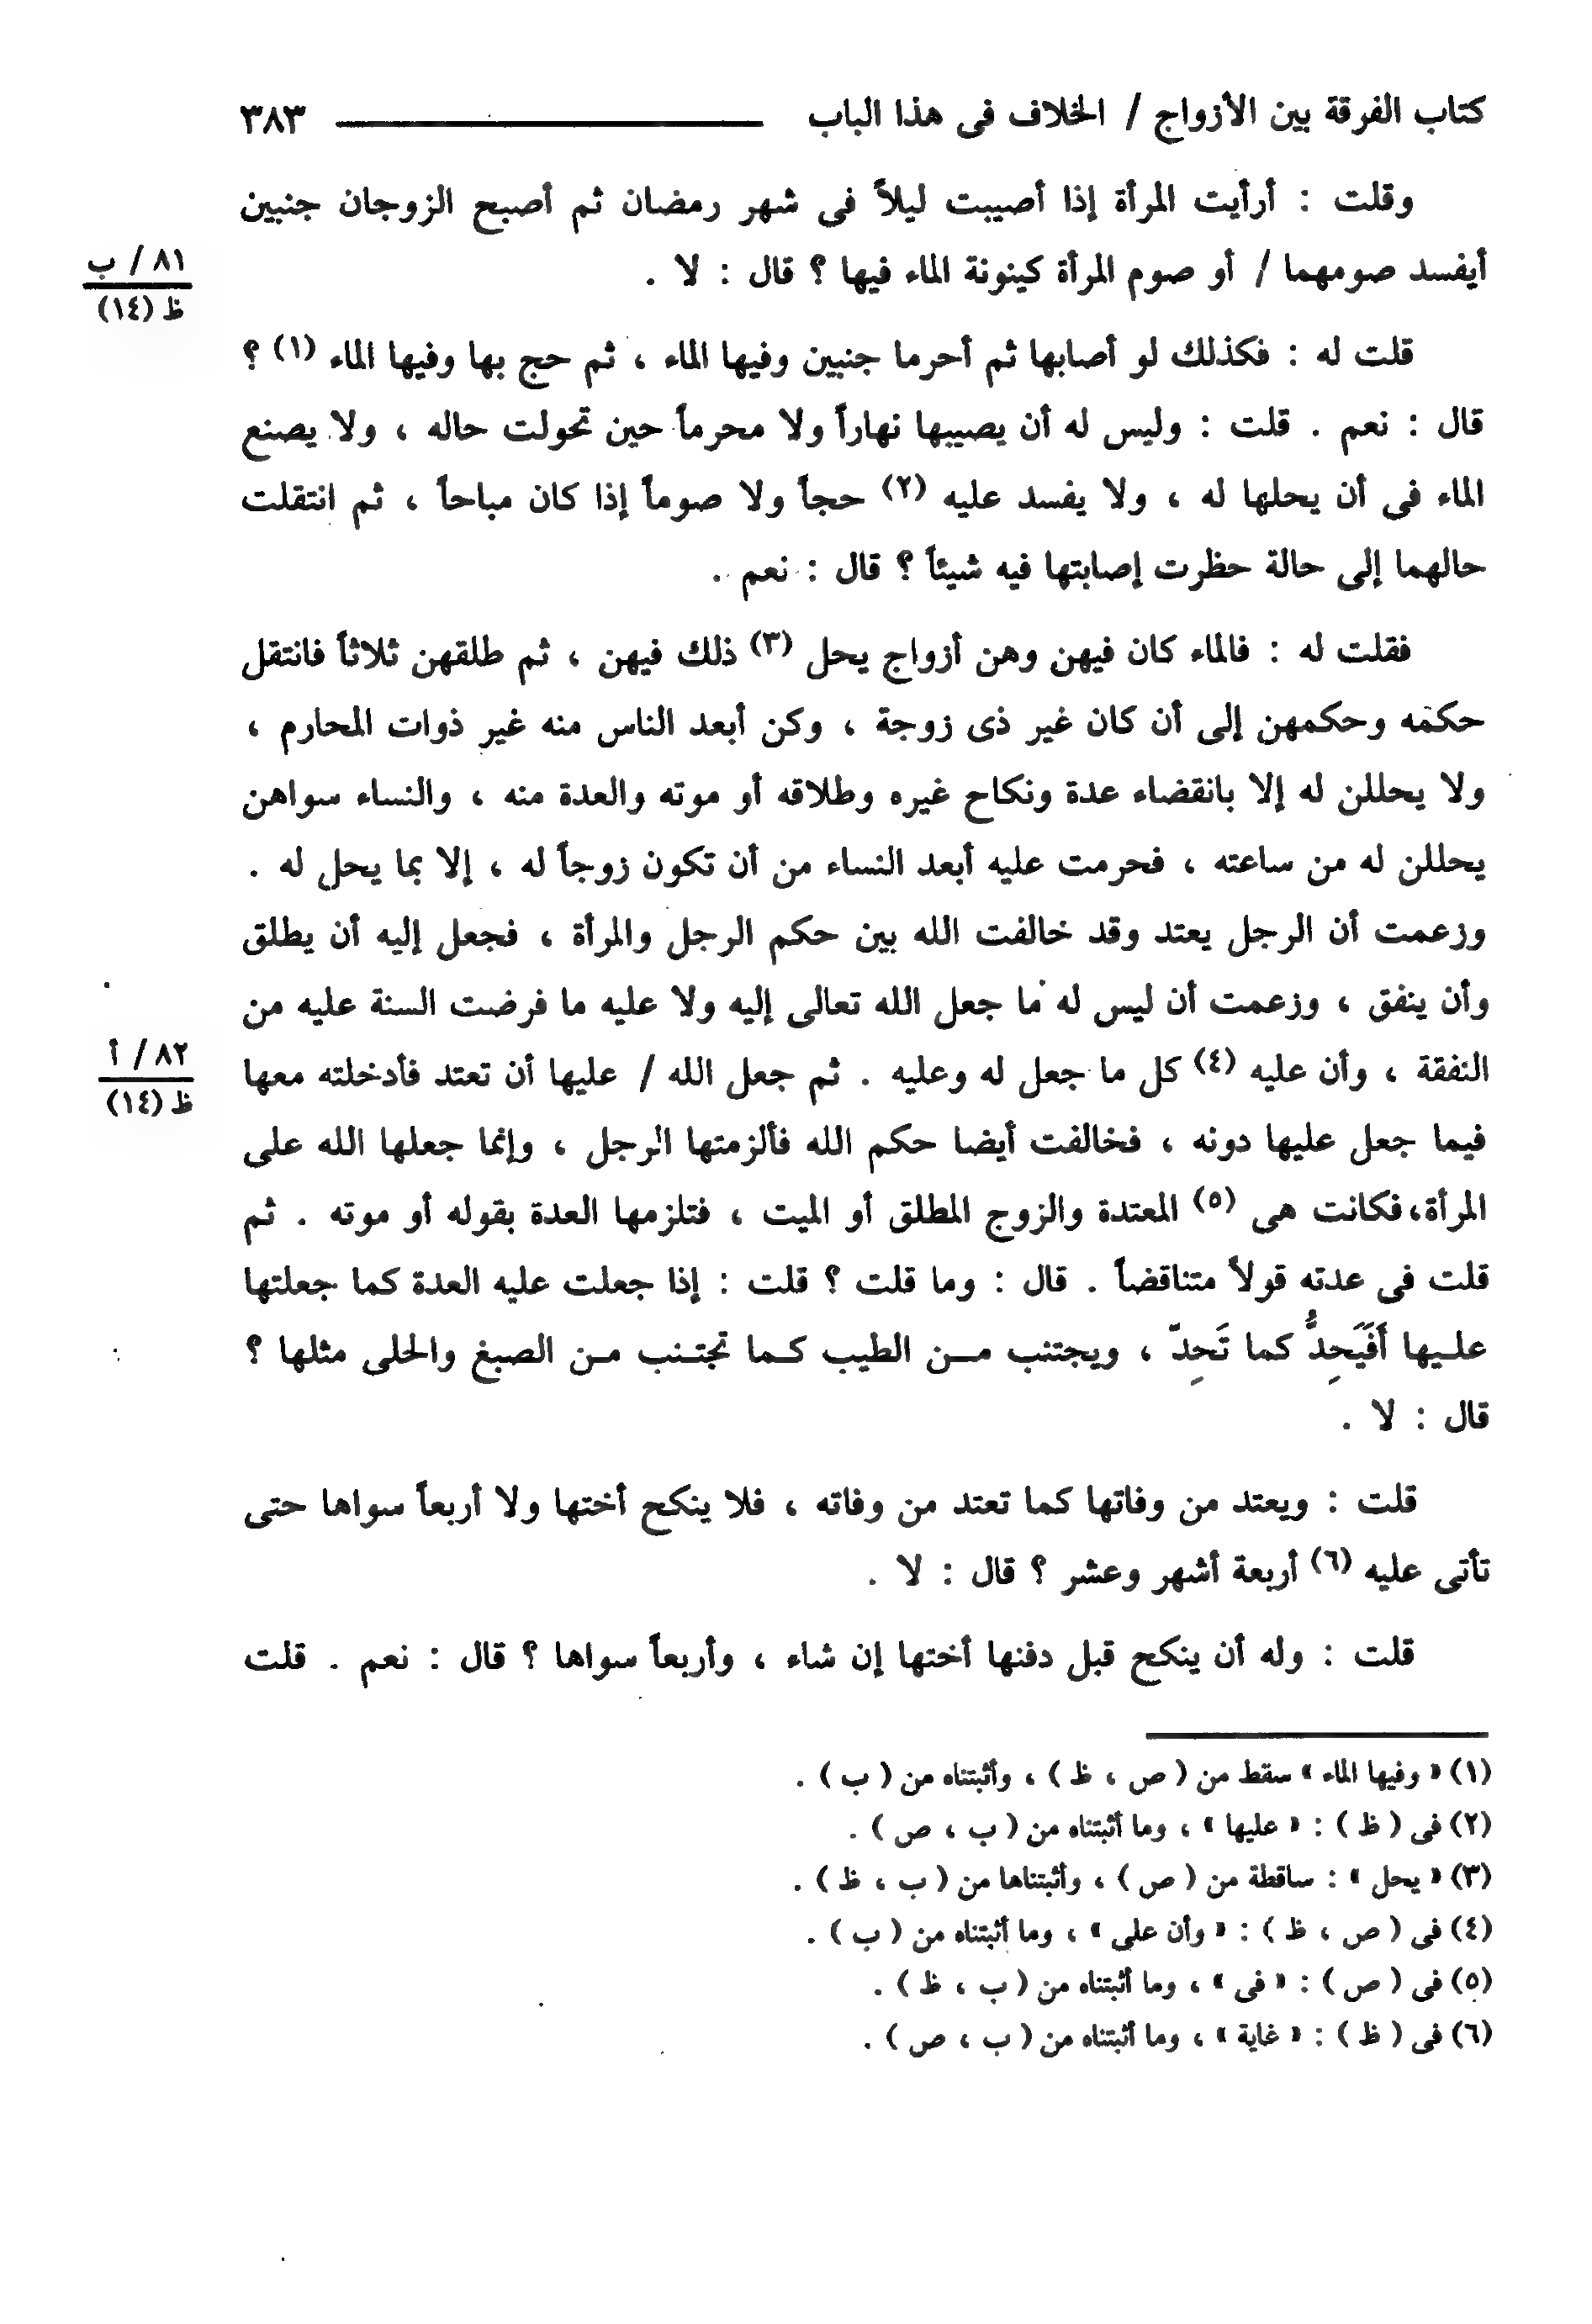 كتاب الفرقة بين الأزواج / الخلاف فى هذا الباب ٣٨٣
وقلت : أرأيت المرأة إذا أصيبت ليلاً فى شهر رمضان ثم أصبح الزوجان جنبين
أيفسد صومهما / أو صوم المرأة كينونة الماء فيها ؟ قال : لا .
٨١ / ب
ظ (١٤)
قلت له : فكذلك لو أصابها ثم أحرما جنبين وفيها الماء ، ثم حج بها وفيها الماء (١) ؟
قال : نعم . قلت : وليس له أن يصيبها نهاراً ولا محرماً حين تحولت حاله ، ولا يصنع
الماء فى أن يحلها له ، ولا يفسد عليه (٢) حجاً ولا صوماً إذا كان مباحاً ، ثم انتقلت
حالهما إلى حالة حظرت إصابتها فيه شيئاً ؟ قال : نعم .
فقلت له : فالماء كان فيهن وهن أزواج يحل (٣) ذلك فيهن ، ثم طلقهن ثلاثاً فانتقل
حكمه وحكمهن إلى أن كان غير ذى زوجة ، وكن أبعد الناس منه غير ذوات المحارم ،
ولا يحللن له إلا بانقضاء عدة ونكاح غيره وطلاقه أو موته والعدة منه ، والنساء سواهن
يحللن له من ساعته ، فحرمت عليه أبعد النساء من أن تكون زوجاً له ، إلا بما يحل له .
وزعمت أن الرجل يعتد وقد خالفت الله بين حكم الرجل والمرأة ، فجعل إليه أن يطلق
وأن ينفق ، وزعمت أن ليس له ما جعل الله تعالى إليه ولا عليه ما فرضت السنة عليه من
النفقة ، وأن عليه (٤) كل ما جعل له وعليه . ثم جعل الله / عليها أن تعتد فأدخلته معها
٨٢ / أ
ظ (١٤)
فيما جعل عليها دونه ، فخالفت أيضا حكم الله فألزمتها الرجل ، وإنما جعلها الله على
المرأة،فكانت هى (٥) المعتدة والزوج المطلق أو الميت ، فتلزمها العدة بقوله أو موته . ثم
قلت فى عدته قولاً متناقضاً . قال : وما قلت ؟ قلت : إذا جعلت عليه العدة كما جعلتها
عليها أَفَيَحِدُّ كما تَحِدّ ، ويجتنب من الطيب كما تجتنب من الصبغ والحلى مثلها ؟
قال : لا .
قلت : ويعتد من وفاتها كما تعتد من وفاته ، فلا ينكح أختها ولا أربعاً سواها حتى
تأتى عليه (٦) أربعة أشهر وعشر ؟ قال : لا .
قلت : وله أن ينكح قبل دفنها أختها إن شاء ، وأربعاً سواها ؟ قال : نعم . قلت
(١) « وفيها الماء » سقط من ( ص ، ظ ) ، وأثبتناه من ( ب ) .
(٢) فى ( ظ ) : « عليها » ، وما أثبتناه من ( ب ، ص ) .
(٣) « يحل » : ساقطة من ( ص ) ، وأثبتناها من ( ب ، ظ ) .
(٤) فى ( ص ، ظ ) : « وأن على » ، وما أثبتناه من ( ب ) .
(٥) فى ( ص ) : « فى » ، وما أثبتناه من ( ب ، ظ ) .
(٦) فى ( ظ ) : « غاية » ، وما أثبتناه من ( ب ، ص ) .